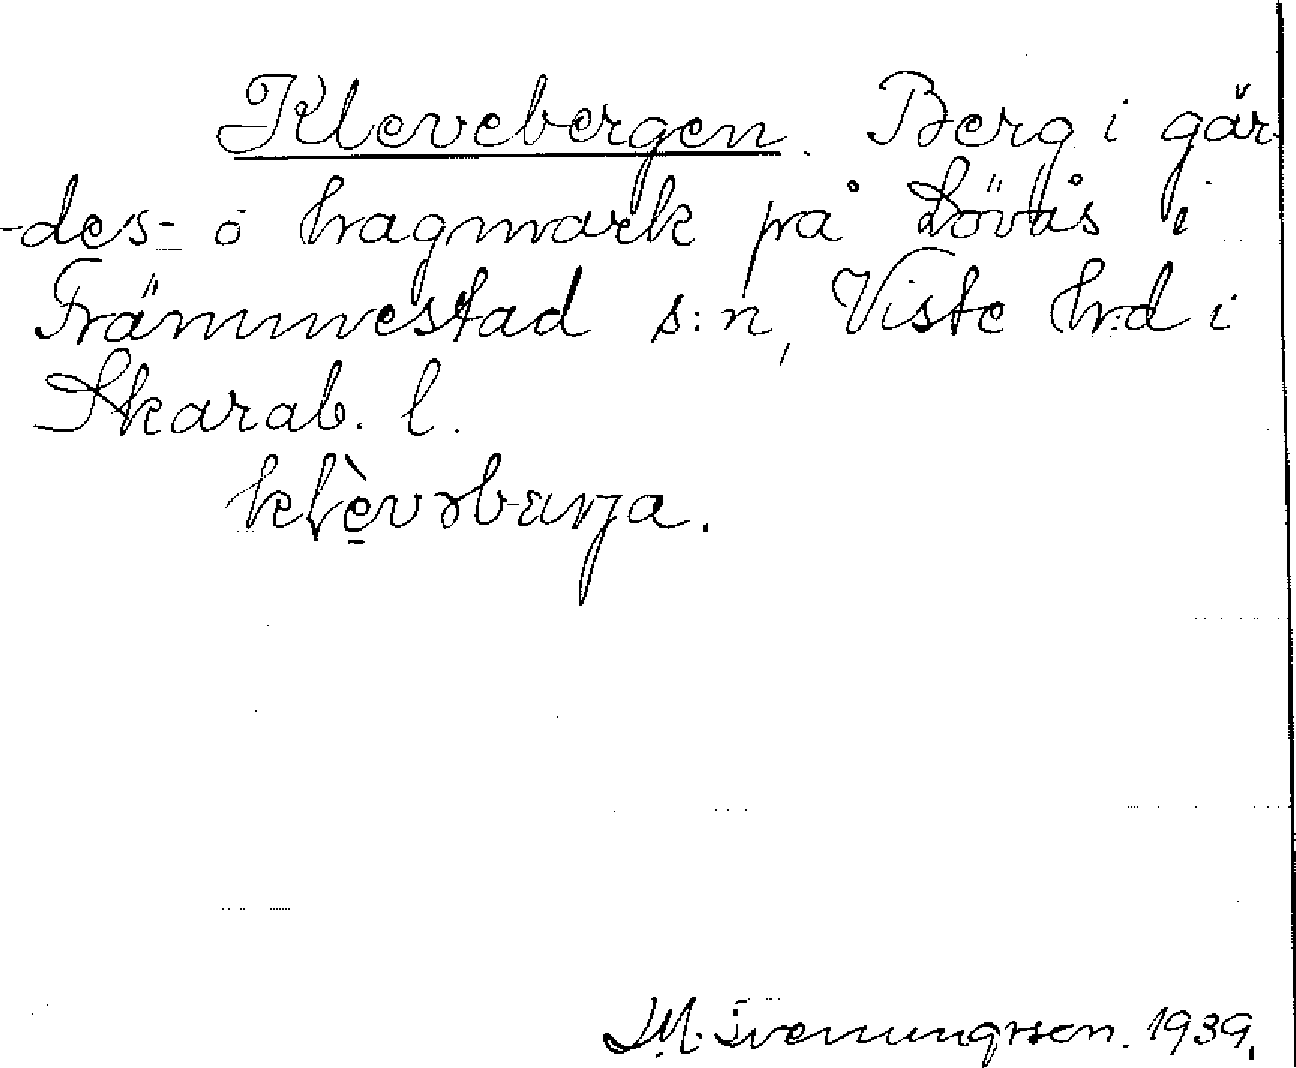 Klevebergen. Berg i gär-
-des- o hagmark på Lövås i
Främmestad s:n, Viste hrd i
Skarab. l.
klèvəbærja.
1939.